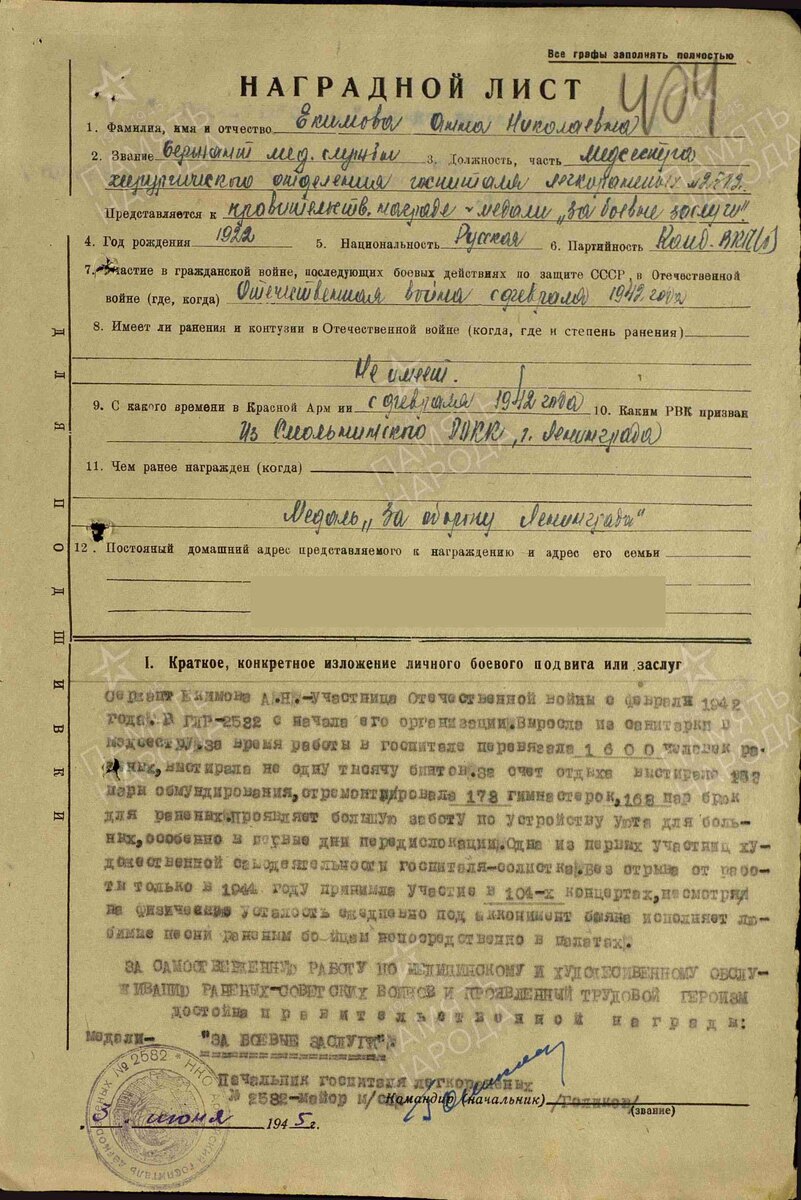 Все графы заполнять полностью
НАГРАДНОЙ ЛИСТ
404
1. Фамилия, имя и отчество Екимова Анна Николаевна
2. Звание Сержант мед. службы 3. Должность, часть Медсестра
хирургического отделения госпиталя легкораненых №2582
Представляется к правительств. награде - медали „За боевые заслуги"
4. Год рождения 1922 5. Национальность Русская 6. Партийность Канд. ВКП(б)
7. Участие в гражданской войне, последующих боевых действиях по защите СССР, в Отечественной
войне (где, когда) Отечественная война с февраля 1942 года
8. Имеет ли ранения и контузии в Отечественной войне (когда, где и степень ранения)
Не имеет.
9. С какого времени в Красной Армии с февраля 1942 года 10. Каким РВК призван
Из Смольнинского РОКК, г. Ленинграда
11. Чем ранее награжден (когда)
Медаль „За оборону Ленинграда"
12. Постоянный домашний адрес представляемого к награждению и адрес его семьи
ДЛЯ ПОДШИВКИ
I. Краткое, конкретное изложение личного боевого подвига или заслуг
Сержант Екимова А.Н.-участница Отечественной войны с февраля 1942
года. В ГЛР-2582 с начала его организации.Выросла из санитарки в
медсестру.За время работы в госпитале перевязала 1600 человек ра-
неных,выстирала не одну тысячу бинтов.За счет отдыха выстирала
пары обмундирования,отремонтировала 178 гимнастерок,168 пар брюк
для раненых.Проявляет большую заботу по устройству уюта для боль-
ных,особенно в первые дни передислокации.Одна из первых участниц ху-
дожественной самодеятельности госпиталя-солистка.Без отрыва от рабо-
ты только в 1944 году приняла участие в 104-х концертах,несмотря
на физическую усталость ежедневно под аккомпанимент баяна исполняет лю-
бимые песни раненым бойцам непосредственно в палатах.
ЗА САМООТВЕРЖЕННУЮ РАБОТУ ПО МЕДИЦИНСКОМУ И ХУДОЖЕСТВЕННОМУ ОБСЛУ-
ЖИВАНИЮ РАНЕНЫХ-СОВЕТСКИХ ВОИНОВ И ПРОЯВЛЕННЫЙ ТРУДОВОЙ ГЕРОИЗМ
достойна правительственной награды:
медали- "ЗА БОЕВЫЕ ЗАСЛУГИ".
Начальник госпиталя легкораненых
№ 2582-майор м/сл /Голиков/
Командир (начальник)
(звание)
3. июня 1945 г.
ПАМЯТЬ НАРОДА